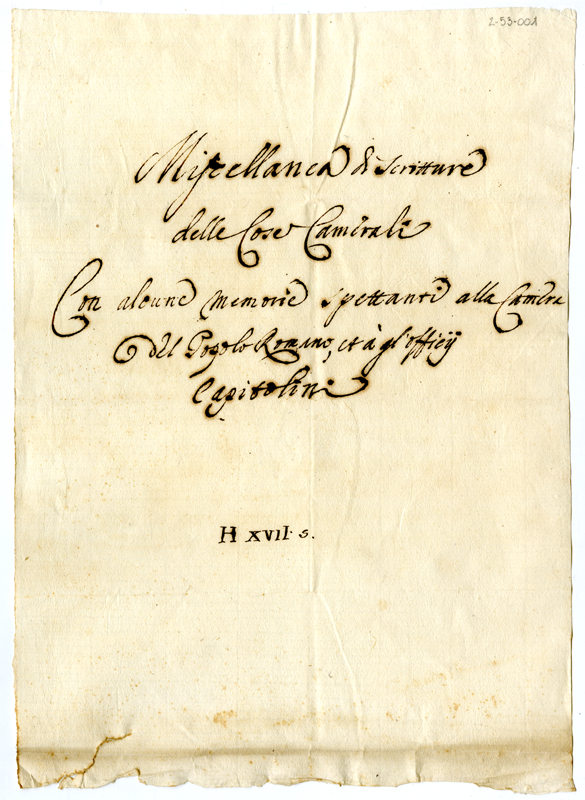 2-53-001
Miscellanea di Scritture
delle Cose Camerali
Con alcune memorie spettanti alla Camera
del Popolo Romano, et à gl'officij
Capitolini
H XVII. s.